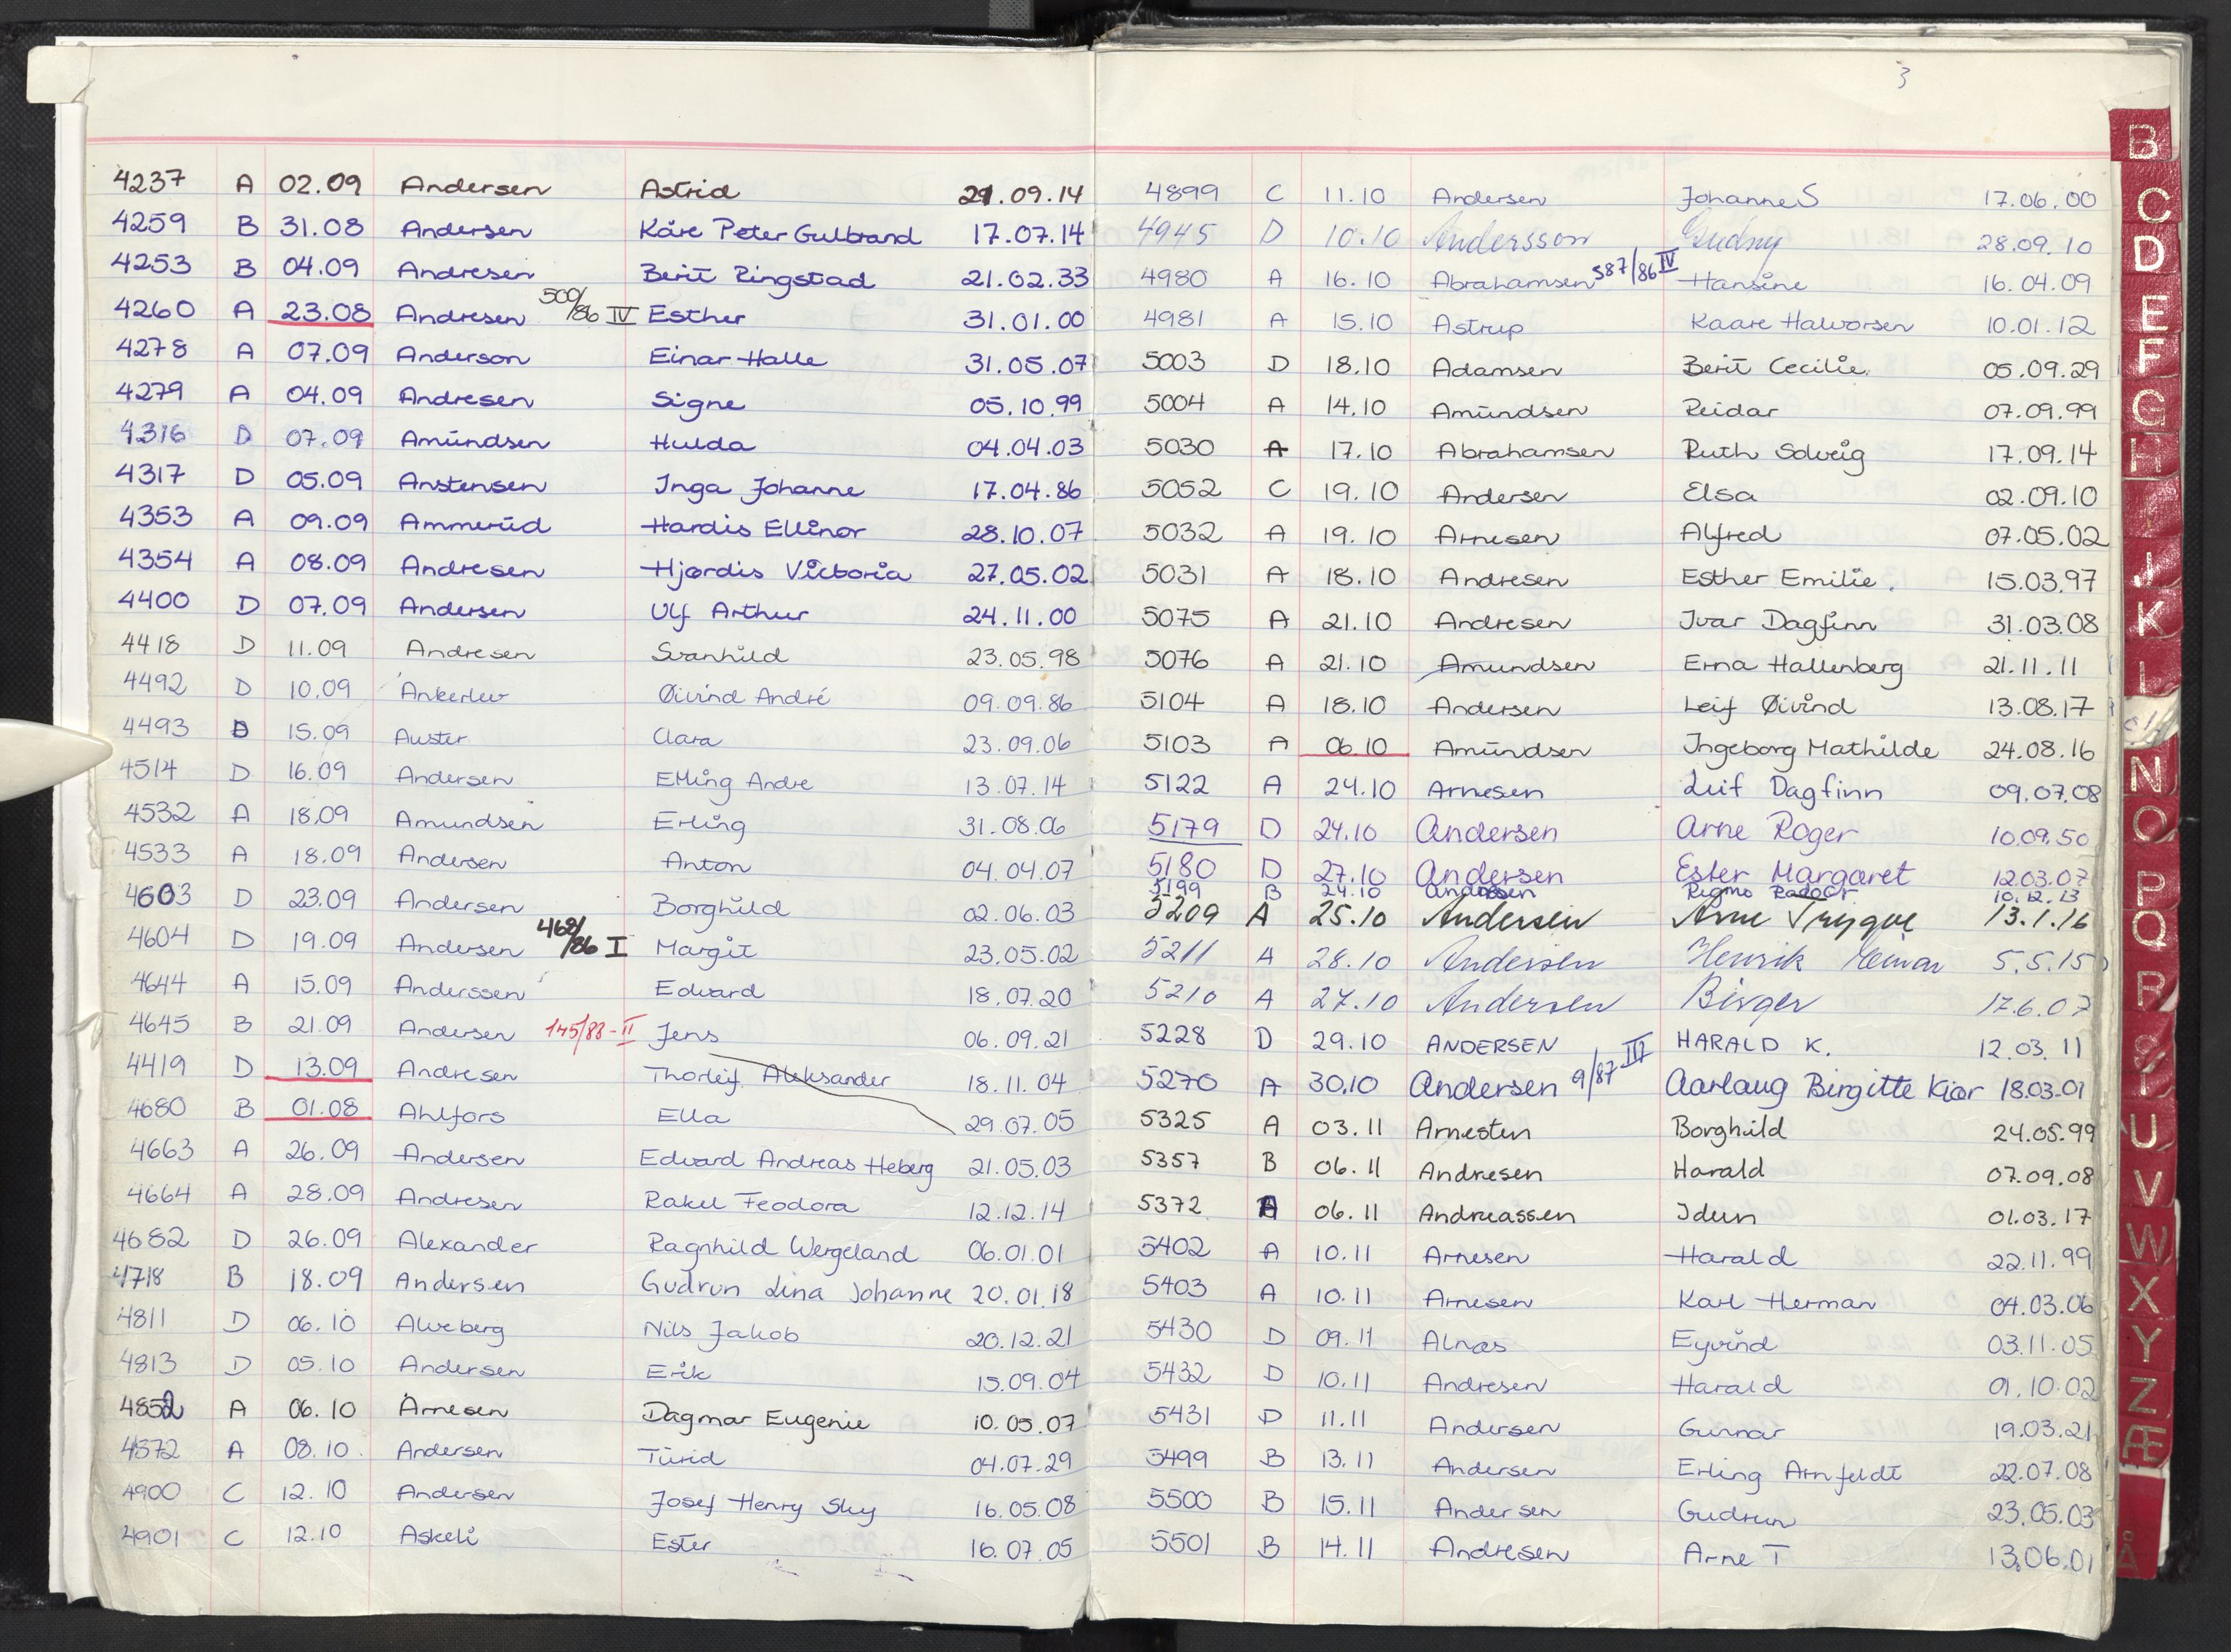 4237 A 02.09 Andersen Astrid 21.09.14
4259 B 31.08 Andersen Kåre Peter Gulbrand 17.07.14
4253 B 04.09 Andresen Berit Ringstad 21.02.33
4260 A 23.08 Andresen 500/86 IV Esther 31.01.00
4278 A 07.09 Anderson Einar Halle 31.05.07
4279 A 04.09 Andresen Signe 05.10.99
4316 D 07.09 Amundsen Hulda 04.04.03
4317 D 05.09 Anstensen Inga Johanne 17.04.86
4353 A 09.09 Ammerud Hardis Ellinor 28.10.07
4354 A 08.09 Andresen Hjørdis Victoria 27.05.02
4400 D 07.09 Andersen Ulf Arthur 24.11.00
4418 D 11.09 Andresen Svanhild 23.05.98
4492 D 10.09 Ankerløv Øivind André 09.09.86
4493 D 15.09 Auster Clara 23.09.06
4514 D 16.09 Andersen Erling Andre 13.07.14
4532 A 18.09 Amundsen Erling 31.08.06
4533 A 18.09 Andersen Anton 04.04.07
4603 D 23.09 Andersen Borghild 02.06.03
4604 D 19.09 Andersen 468/86 I Margit 23.05.02
4644 A 15.09 Anderssen Edvard 18.07.20
4645 B 21.09 Andersen 145/88-II Jens 06.09.21
4419 D 13.09 Andresen Thorleif Aleksander 18.11.04
4680 B 01.08 Ahlfors Ella 29.07.05
4663 A 26.09 Andersen Edvard Andreas Heberg 21.05.03
4664 A 28.09 Andresen Rakel Feodora 12.12.14
4682 D 26.09 Alexander Ragnhild Wergeland 06.01.01
4718 B 18.09 Andersen Gudrun Lina Johanne 20.01.18
4811 D 06.10 Alveberg Nils Jakob 20.12.21
4813 D 05.10 Andersen Erik 15.09.04
4852 A 06.10 Arnesen Dagmar Eugenie 10.05.07
4572 A 08.10. Andersen Turid 04.07.29
4900 C 12.10 Andersen Josef Henry Sky 16.05.08
4901 C 12.10 Askeli Ester 16.07.05
3
4899 C 11.10 Andersen Johanne S 17.06.00
4945 D 10.10 Andersson Gudny 28.09.10
4980 A 16.10 Abrahamsen 587/86 IV Hansine 16.04.09
4981 A 15.10 Astrup Kaare Halvorsen 10.01.12
5003 D 18.10 Adamsen Berit Cecilie 05.09.29
5004 A 14.10 Amundsen Reidar 07.09.99
5030 A 17.10 Abrahamsen Ruth Solveig 17.09.14
5052 C 19.10 Andersen Elsa 02.09.10
5032 A 19.10 Arnesen Alfred 07.05.02
5031 A 18.10 Andresen Esther Emilie. 15.03.97
5075 A 21.10 Andresen Ivar Dagfinn 31.03.08
5076 A 21.10 Amundsen Erna Hallenberg 21.11.11
5104 A 18.10 Andersen Leif Øivind 13.08.17
5103 A 06.10 Amundsen Ingeborg Mathilde 24.08.16
5122 A 24.10 Arnesen Leif Dagfinn 09.07.08
5179 D 24.10 Andersen Arne Roger 10.09.50
5180 D 27.10 Andersen Ester Margaret 12.03.07
5199 B 24.10 Andersen Rigmo 10.12.13
5209 A 25.10 Andersen Arne Trygve 13.1.16
5211 A 28.10 Andersen Henrik Reinar 5.5.15
5210 A 27.10 Andersen Birger 17.6.07
5228 D 29.10 ANDERSEN HARALD K. 12.03.11
5270 A 30.10 Andersen 9/87 III Aarlaug Birgitte Kiør 18.03.01
5325 A 03.11 Arnesten Borghild 24.05.99
5357 B 06.11 Andresen Harald 07.09.08
5372 A 06.11 Andreassen Idun 01.03.17
5402 A 10.11 Arnesen Harald 22.11.99
5403 A 10.11 Arnesen Karl Herman 04.03.06
5430 D 09.11 Alnæs Eyvind 03.11.05
5432 D 10.11 Andresen Harald 01.10.02
5431 D 11.11 Andersen Gunnar 19.03.21
5499 B 13.11 Andersen Erling Arnfeldt 22.07.08
5500 B 15.11 Andersen Gudrun 23.05.03
5501 B 14.11 Andresen Arne T 13.06.01
B
C
D
E
F
G
H
J
K
L
N
O
P
Q
R
U
V
W
X
Y
Z
Æ
Å